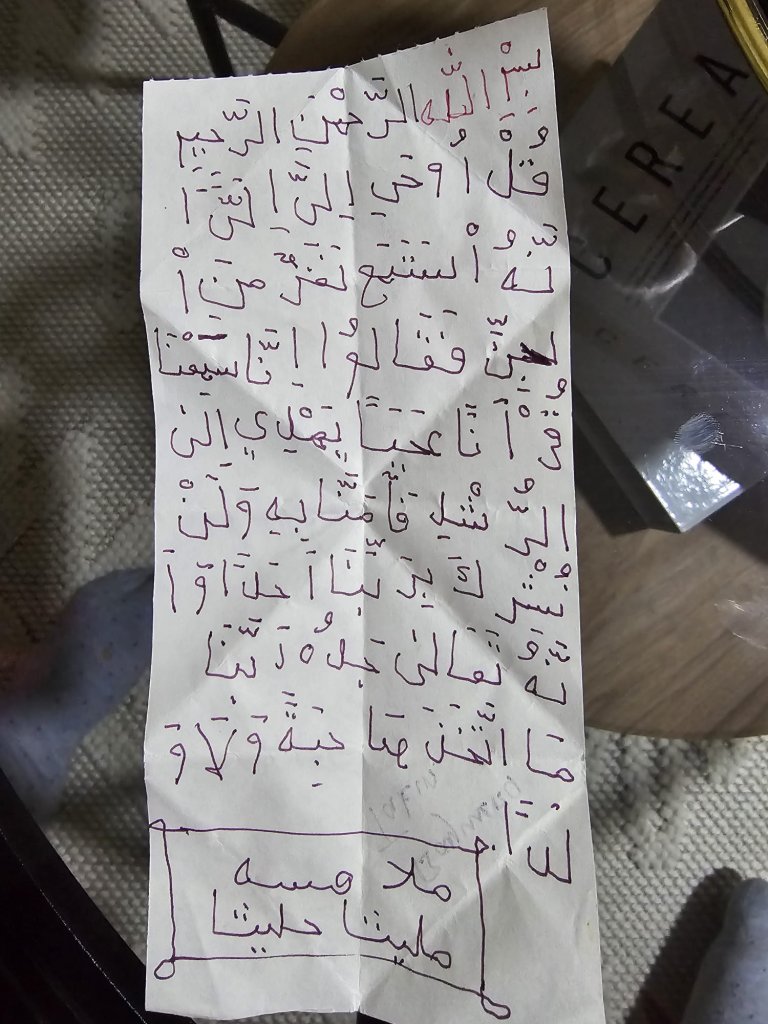 بِسْمِ اللّٰهِ الرَّحْمٰنِ الرَّحِيمِ
قُلْ اُوحَيِ اِلَيَّ اَ
نَّهُ اسْتَمَعَ نَفَرٌ مِنَ اْ
لْجِنَّ فَقَالُوا اِنَّا سَمِعْنَا
قُرْاٰنًا عَجَبًا يَهْدِي اِلىَ
الرُّشْدِ فَآمَنَّا بِهِ وَلَنْ
نُشْرِكَ بِرَبِّنَا اَحَدًا وَاَ
نَّهُ تَعَالىَ جَدُّ رَبِّنَا
مَا اتَّخَذَ صَاحِبَةً وَلَا وَ
لَدًا
CEREA